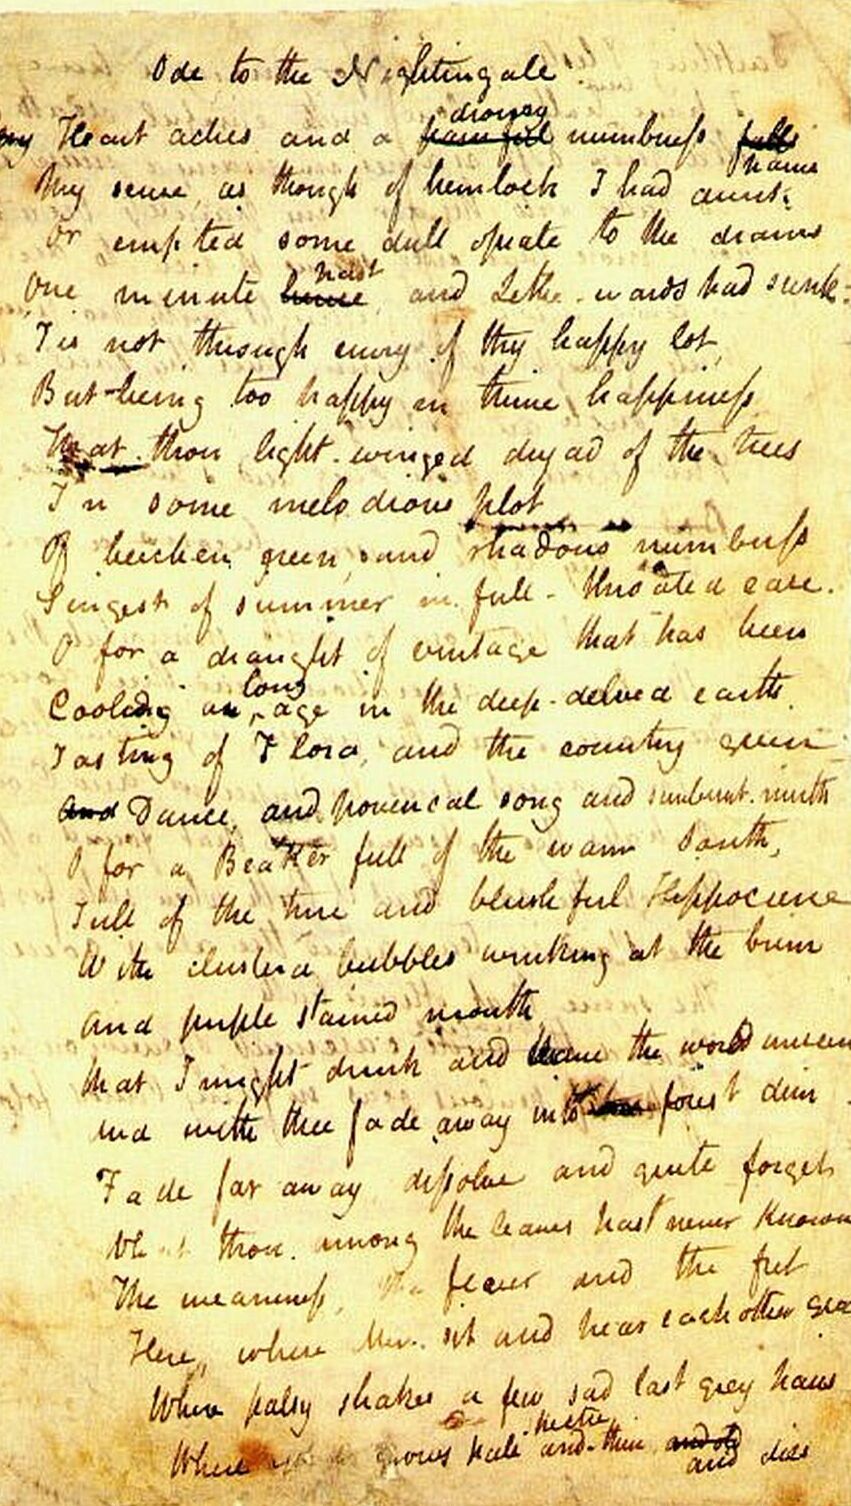 Ode to the Nightingale
drowsy
My Heart aches and a painful numbness falls
pains
My sense, as though of hemlock I had drunk,
Or emptied some dull opiate to the drains
past
One minute hence, and Lethe-wards had sunk-
Tis not through envy of thy happy lot,
But being too happy in thine happiness
That thou light-winged dryad of the trees
In some melodious plot
Of beechen green, and shadows numberless
Singest of summer in full-throated ease.
O for a draught of vintage that has been
long
Cooling an age in the deep-delved earth
Tasting of Flora, and the country green
And Dance, and provencal song and sunburnt mirth
O for a Beaker full of the warm South,
Full of the true and blushful Hippocrene
With cluster'd bubbles winking at the brim
And purple stained mouth
That I might drink and leave the world unseen
And with thee fade away into the forest dim
Fade far away dissolve and quite forget
What thou among the leaves hast never known
The weariness, the fever and the fret
Here, where Men sit and hear each other
Where palsy shakes a few sad last grey hairs
spectre
Where grows pale and thin and old
and dies